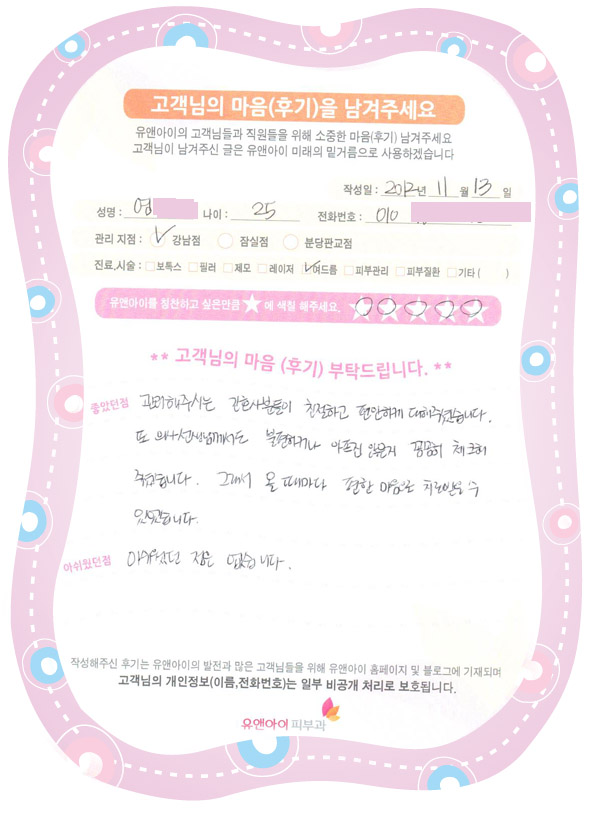 고객님의 마음(후기)을 남겨주세요
유앤아이의 고객님들과 직원들을 위해 소중한 마음(후기) 남겨주세요
고객님이 남겨주신 글은 유앤아이 미래의 밑거름으로 사용하겠습니다
작성일 : 2012년 11 월 13 일
성명 : 염 나이 : 25 전화번호 : 010
관리 지점 : 강남점 잠실점 분당판교점
진료,시술 : 보톡스 필러 제모 레이저 여드름 피부관리 피부질환 기타 ( )
유앤아이를 칭찬하고 싶은만큼 ★ 에 색칠 해주세요.
** 고객님의 마음 (후기) 부탁드립니다. **
좋았던점 관리해주시는 간호사분들이 친절하고 편안하게 대해주셨습니다.
또 의사선생님께서도 불편하거나 아프진 않은지 꼼꼼히 체크해
주셨습니다. 그래서 올 때마다 편한 마음으로 치료받을 수
있었습니다.
아쉬웠던점 아쉬웠던 점은 없습니다.
작성해주신 후기는 유앤아이의 발전과 많은 고객님들을 위해 유앤아이 홈페이지 및 블로그에 기재되며
고객님의 개인정보(이름,전화번호)는 일부 비공개 처리로 보호됩니다.
유앤아이 피부과